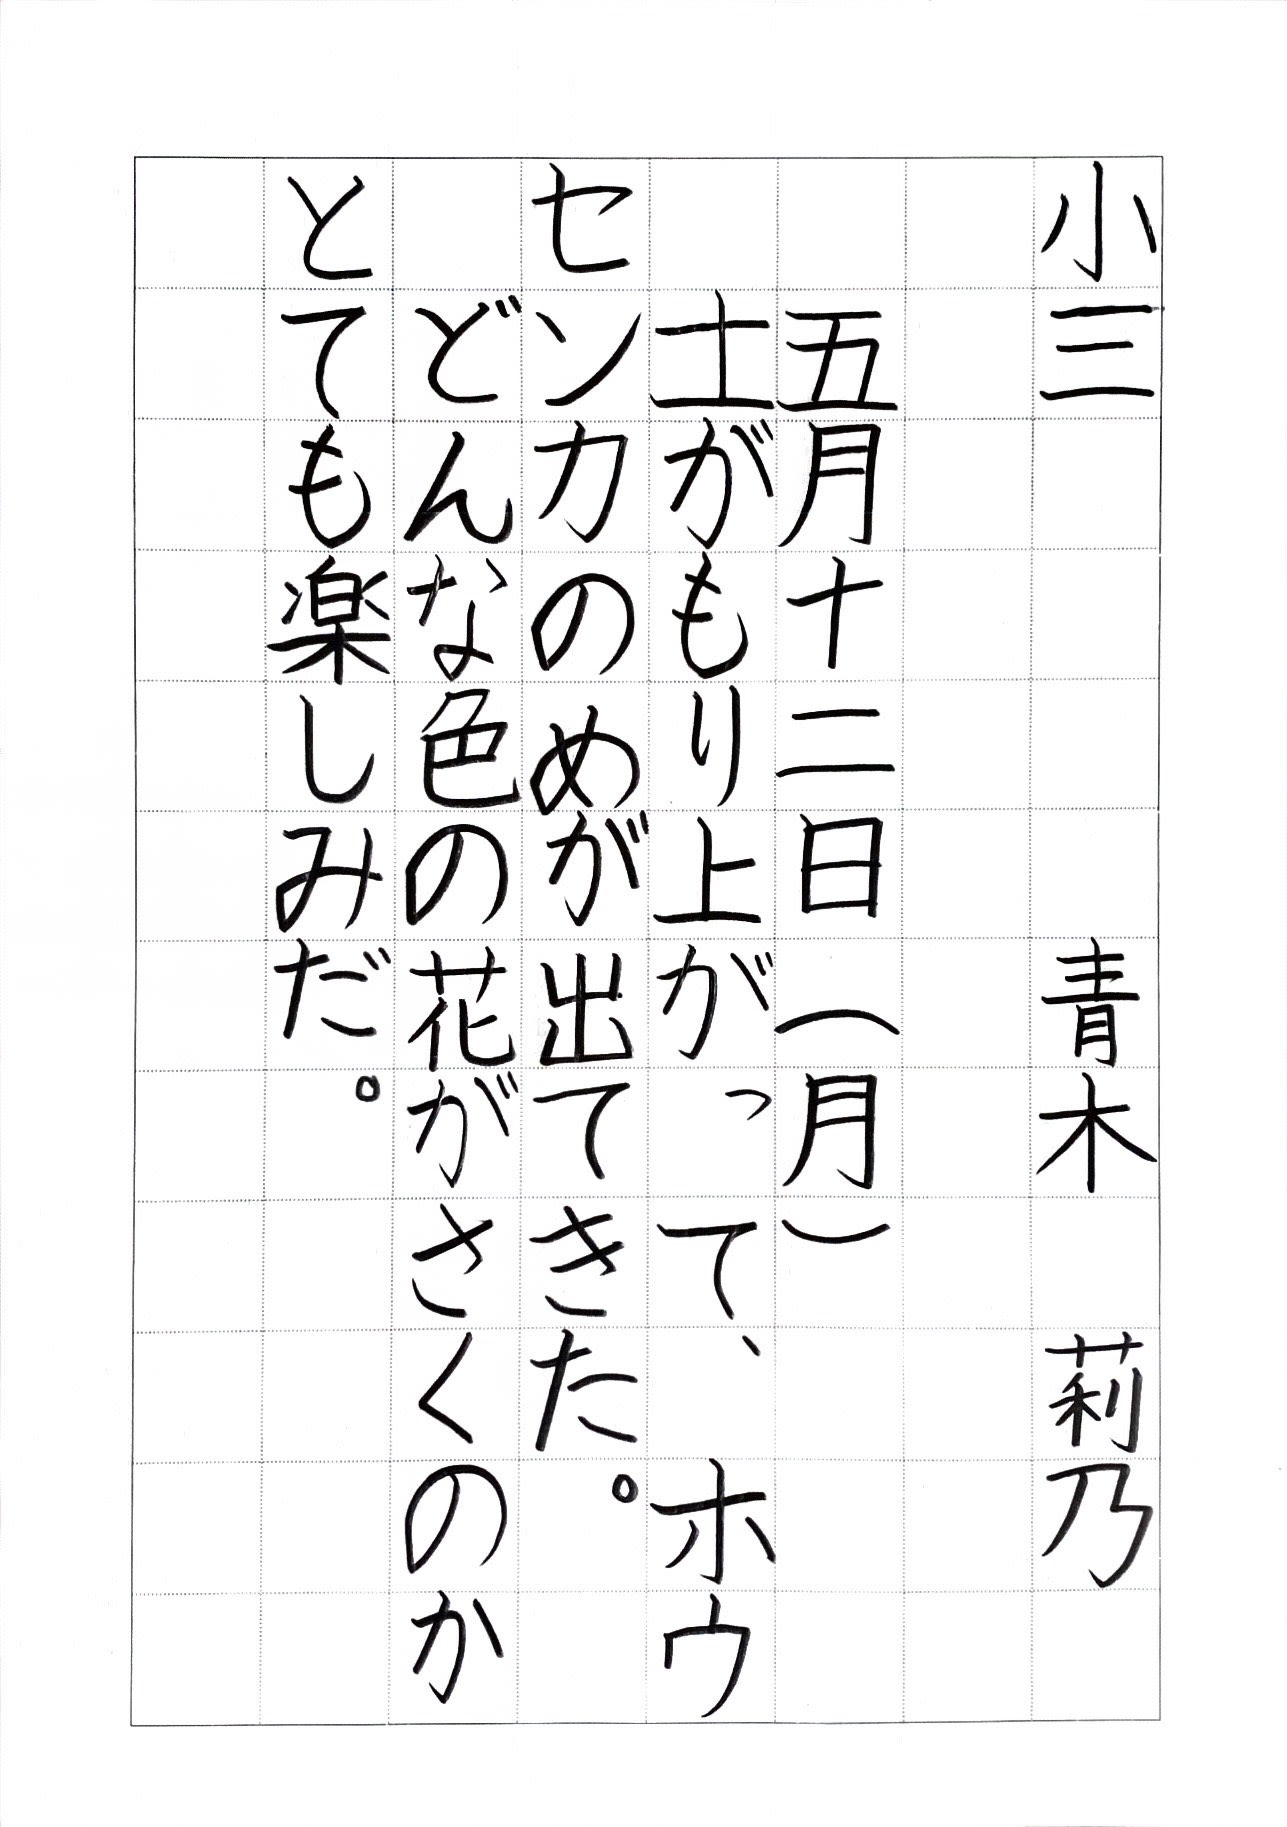 小三　　　　青木　莉乃
五月十二日（月）
土がもり上がって、ホウ
センカのめが出てきた。
どんな色の花がさくのか
とても楽しみだ。